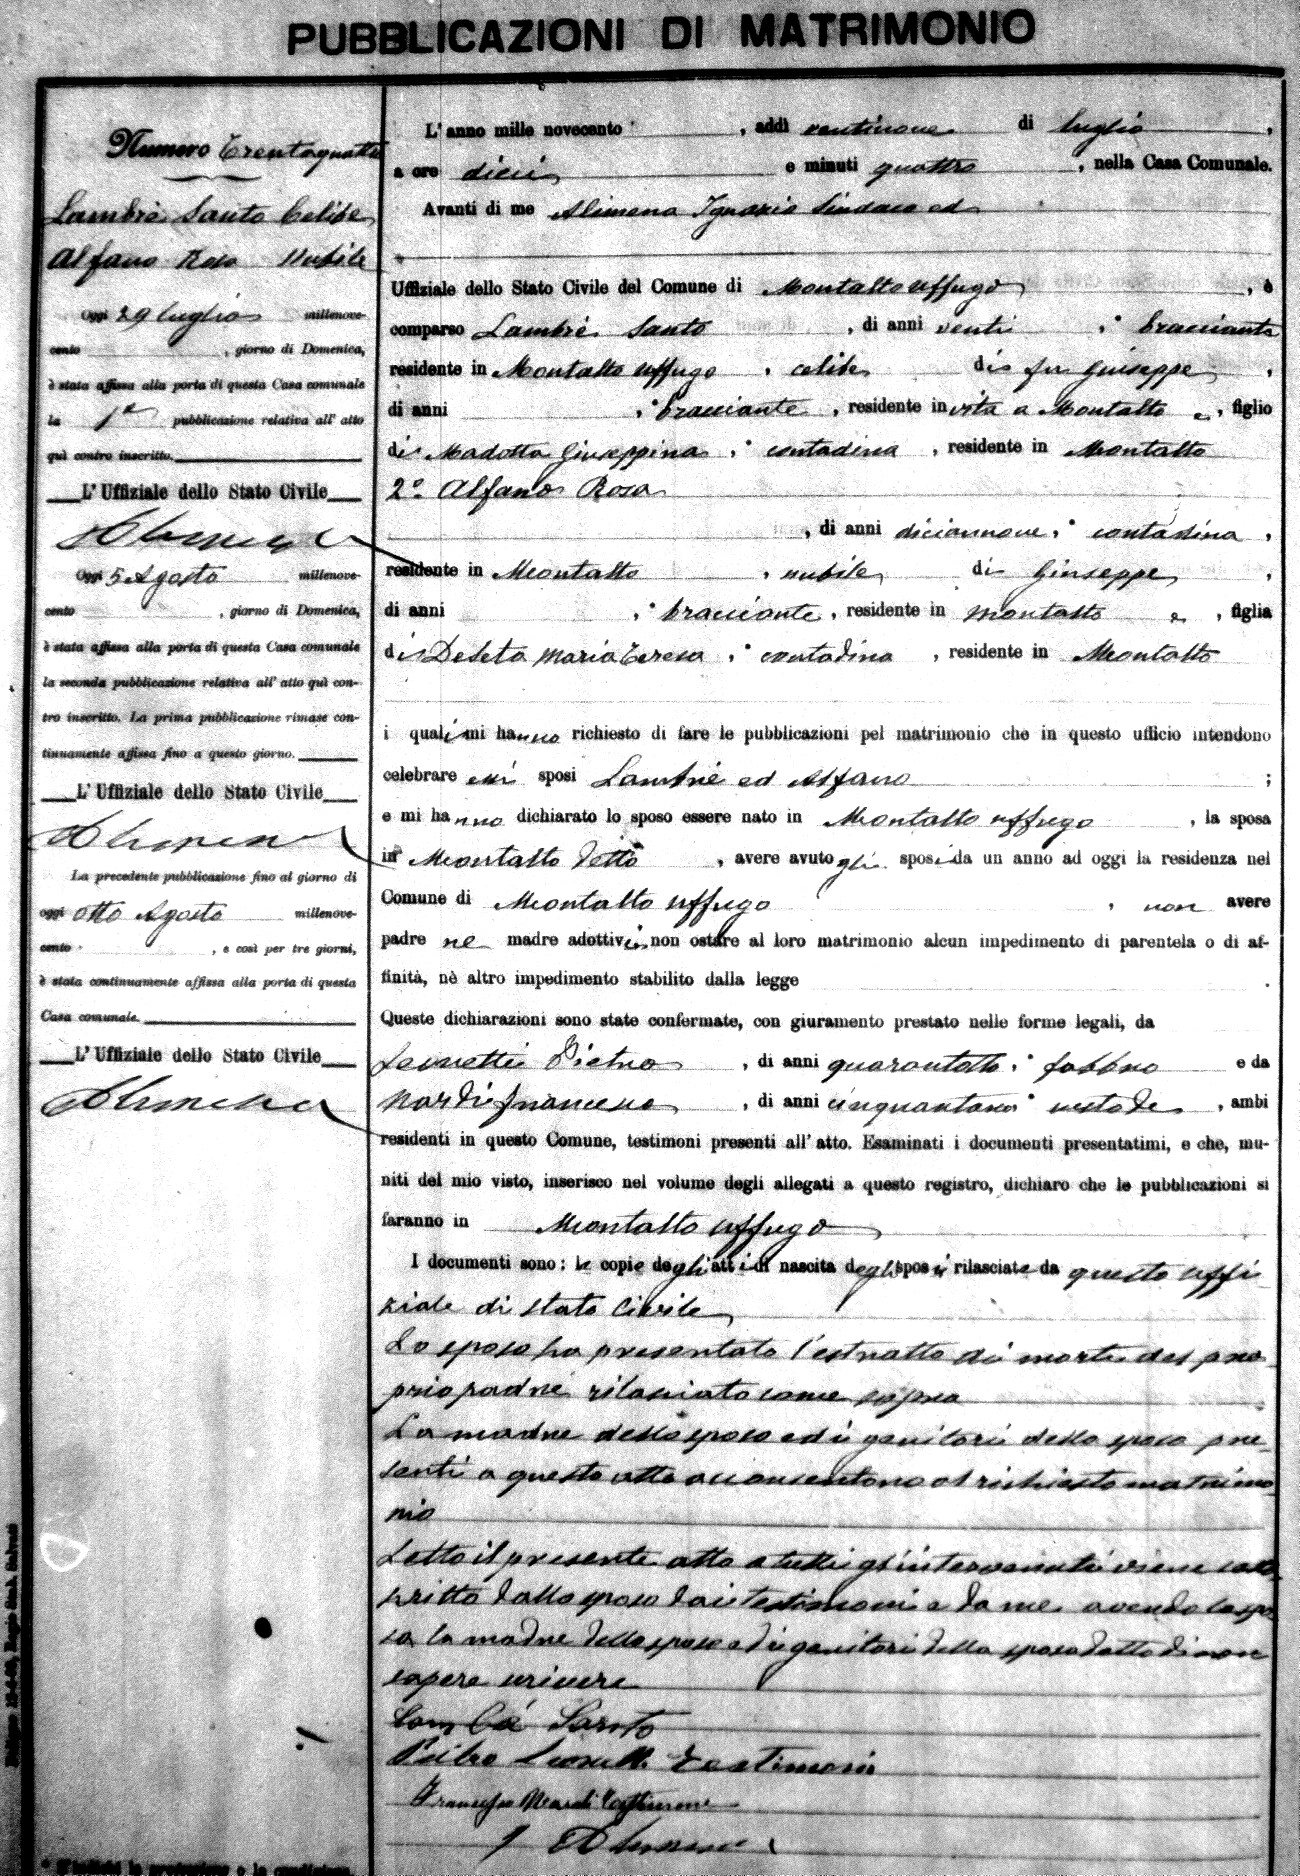 PUBBLICAZIONI DI MATRIMONIO
Numero Trentaquattro
Lambrè Santo Celibe
Alfano Rosa Nubile
Oggi 29 luglio millenove-
cento , giorno di Domenica,
è stata affissa alla porta di questa Casa comunale
la 1ª pubblicazione relativa all' atto
quì contro inscritto.
L' Uffiziale dello Stato Civile
Alimena
Oggi 5 Agosto millenove-
cento , giorno di Domenica,
è stata affissa alla porta di questa Casa comunale
la seconda pubblicazione relativa all' atto quì con-
tro inscritto. La prima pubblicazione rimase con-
tinuamente affissa fino a questo giorno.
L' Uffiziale dello Stato Civile
Alimena
La precedente pubblicazione fino al giorno di
oggi otto Agosto millenove-
cento , e così per tre giorni,
è stata continuamente affissa alla porta di questa
Casa comunale.
L' Uffiziale dello Stato Civile
Alimena
L' anno mille novecento , addì ventinove di luglio ,
a ore dieci e minuti quattro , nella Casa Comunale.
Avanti di me Alimena Ignazio Sindaco ed
Uffiziale dello Stato Civile del Comune di Montalto Uffugo , è
comparso Lambrè Santo , di anni venti , bracciante
residente in Montalto Uffugo , celibe di fu Giuseppe ,
di anni , bracciante , residente in vita a Montalto e , figlio
di Madotta Giuseppina , contadina , residente in Montalto
2° Alfano Rosa
, di anni diciannove , contadina ,
residente in Montalto , nubile di Giuseppe ,
di anni , bracciante , residente in Montalto e , figlia
di DeSeta Maria Teresa , contadina , residente in Montalto
i quali mi hanno richiesto di fare le pubblicazioni pel matrimonio che in questo ufficio intendono
celebrare essi sposi Lambrè ed Alfano ;
e mi hanno dichiarato lo sposo essere nato in Montalto Uffugo , la sposa
in Montalto detto , avere avuto gli sposi da un anno ad oggi la residenza nel
Comune di Montalto Uffugo , non avere
padre nè madre adottivi, non ostare al loro matrimonio alcun impedimento di parentela o di af-
finità, nè altro impedimento stabilito dalla legge .
Queste dichiarazioni sono state confermate, con giuramento prestato nelle forme legali, da
Pietro , di anni quarantotto , fabbro e da
Nardi Francesco , di anni , ambi
residenti in questo Comune, testimoni presenti all' atto. Esaminati i documenti presentatimi, e che, mu-
niti del mio visto, inserisco nel volume degli allegati a questo registro, dichiaro che le pubblicazioni si
faranno in Montalto Uffugo
I documenti sono: le copie degli atti di nascita degli sposi rilasciate da questo uffi
ziale di stato Civile
Lo sposo ha presentato l'estratto di morte del pro
prio padre rilasciato come sopra
La madre dello sposo ed i genitori della sposa pre-
senti a questo atto acconsentono al richiesto matrimo
nio
Letto il presente atto a tutti gl'intervenuti viene sotto
scritto dallo sposo dai testimoni e da me avendo la spo
sa la madre dello sposo ed i genitori della sposa detto di non
sapere scrivere
Lambrè Santo
Pietro Testimonio
Francesco Nardi Testimone
Alimena